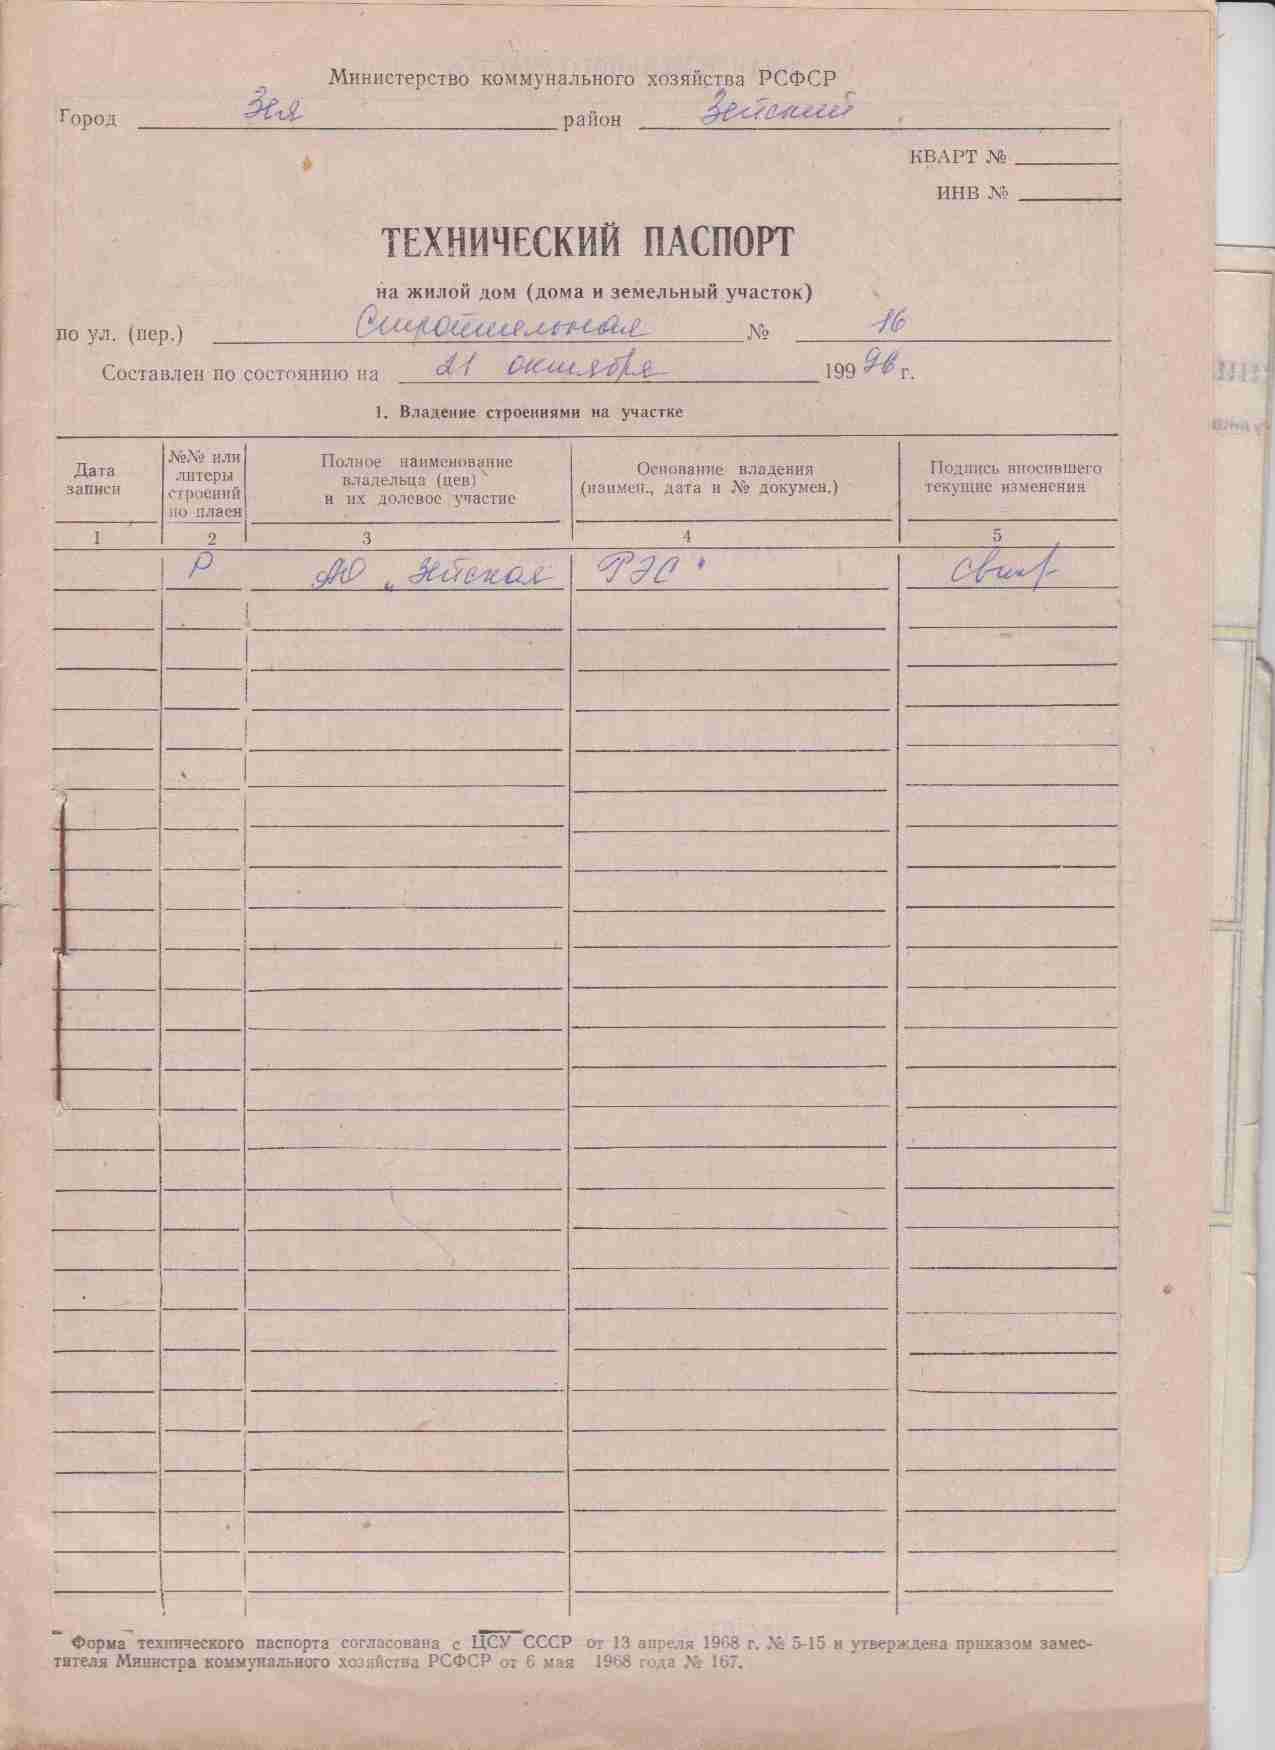 Министерство коммунального хозяйства РСФСР
Город Зея район Зейский
КВАРТ №
ИНВ №
ТЕХНИЧЕСКИЙ ПАСПОРТ
на жилой дом (дома и земельный участок)
по ул. (пер.) Строительная № 16
Составлен по состоянию на 21 октября 199 96 г.
1. Владение строениями на участке
Дата записи
№№ или литеры строений по плаен
Полное наименование владельца (цев) и их долевое участие
Основание владения (наимен., дата и № докумен.)
Подпись вносившего текущие изменения
1 2 3 4 5
Р АО „Зейская РЭС"
Форма технического паспорта согласована с ЦСУ СССР от 13 апреля 1968 г. № 5-15 и утверждена приказом замес-
тителя Министра коммунального хозяйства РСФСР от 6 мая 1968 года № 167.